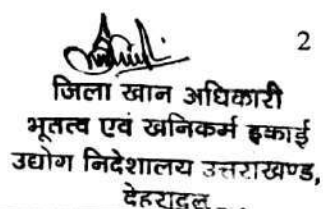 2
जिला खान अधिकारी
भूतत्व एवं खनिकर्म इकाई
उद्योग निदेशालय उत्तराखण्ड,
देहरादून